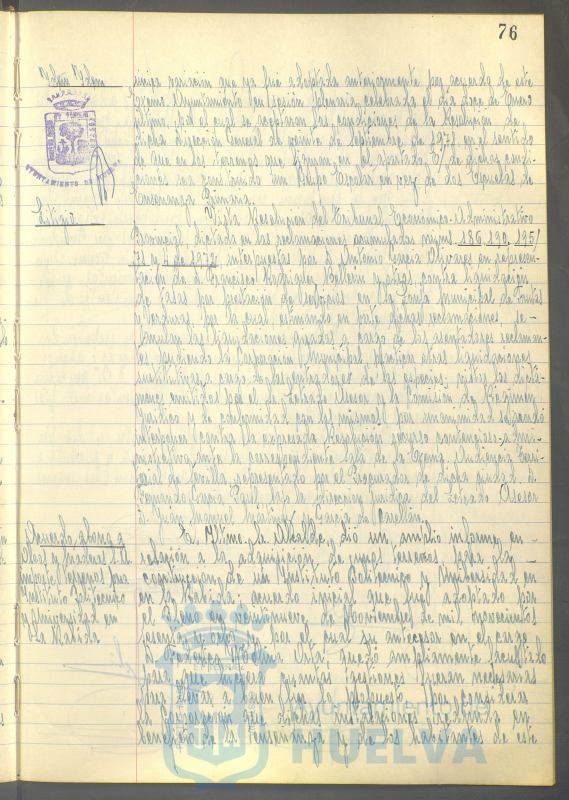 76
Idem Idem
única variación que ya fué adoptada anteriormente por acuerdo de este
Excmo. Ayuntamiento en sesión plenaria celebrada el día doce de Enero
último, por el cual se aceptaron las condiciones de la Resolución de
dicha Dirección General de veinte de Septiembre de 1971 en el sentido
de que en los terrenos que figuran en el apartado C) de dichas condi-
ciones sea construido un Grupo Escolar en vez de dos Escuelas de
Enseñanza Primaria.
AYUNTAMIENTO DE HUELVA
Litigio
Vista Resolución del Tribunal Económico-Administrativo
Provincial dictada en las reclamaciones acumuladas núms. 186, 190, 195/
71 y 4 de 1972, interpuestas por D. Antonio García Olivares en represen-
tación de D. Francisco Rodríguez y otros, contra liquidación
de tasas por prestación de servicios en la Lonja municipal de Frutas
y Verduras por la cual, estimando en parte dichas reclamaciones, se
anulan las liquidaciones giradas a cargo de los asentadores reclaman-
tes, pudiendo la Corporación Municipal practicar otras liquidaciones
sustitutivas a cargo de los entradores de las especies; vistos los dictá-
menes emitidos por el Sr. Letrado Asesor y la Comisión de Régimen
Jurídico y de conformidad con los mismos por unanimidad se acordó
interponer contra la expresada Resolución recurso contencioso-admi-
nistrativo ante la correspondiente Sala de la Excma. Audiencia Terri-
torial de Sevilla representado por el Procurador de dicha ciudad D.
Fernando García Paul bajo la dirección jurídica del Letrado Asesor
D. Juan Manuel Martínez García de
Acuerdo abono a
importe terrenos para
Instituto Politécnico
y Universidad en
La Rábida
El Iltmo. Sr. Alcalde dio un amplio informe en
relación a la adquisición de unos terrenos para la
construcción de un Instituto Politécnico y Universidad en
en La Rábida; acuerdo inicial que fué adoptado por
el Pleno en veintinueve de Noviembre de mil novecientos
sesenta y ocho, por el cual su antecesor en el cargo
D. Federico Molina Orta, quedó ampliamente facultado
para que hiciera cuantas gestiones fueran necesarias
para llevar a buen fin lo propuesto, por considerar
la Corporación que dichas instalaciones irían en
beneficio de la Enseñanza y de los habitantes de este
Ayuntamiento de
HUELVA